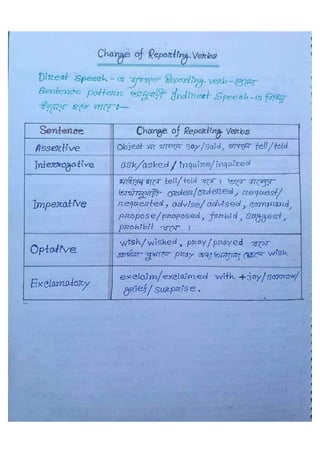 Change of Reporting Verbs
Direct Speech-এ ব্যবহৃত Reporting verb-গুলো
Sentence pattern অনুযায়ী Indirect Speech-এ
হতে পারে:—
Sentence | Change of Reporting Verbs
Assertive | Object না থাকলে say/said, থাকলে tell/told
Interrogative | ask/asked / inquire/inquired
Imperative | tell/told হয়।
order/ordered, request/
requested, advise/advised, command,
propose/proposed, forbid, suggest,
prohibit হয়।
Optative | wish/wished, pray/prayed
প্রার্থনা বুঝালে pray এবং অন্যান্য ক্ষেত্রে wish
Exclamatory | exclaim/exclaimed with +joy/sorrow/
grief/surprise.